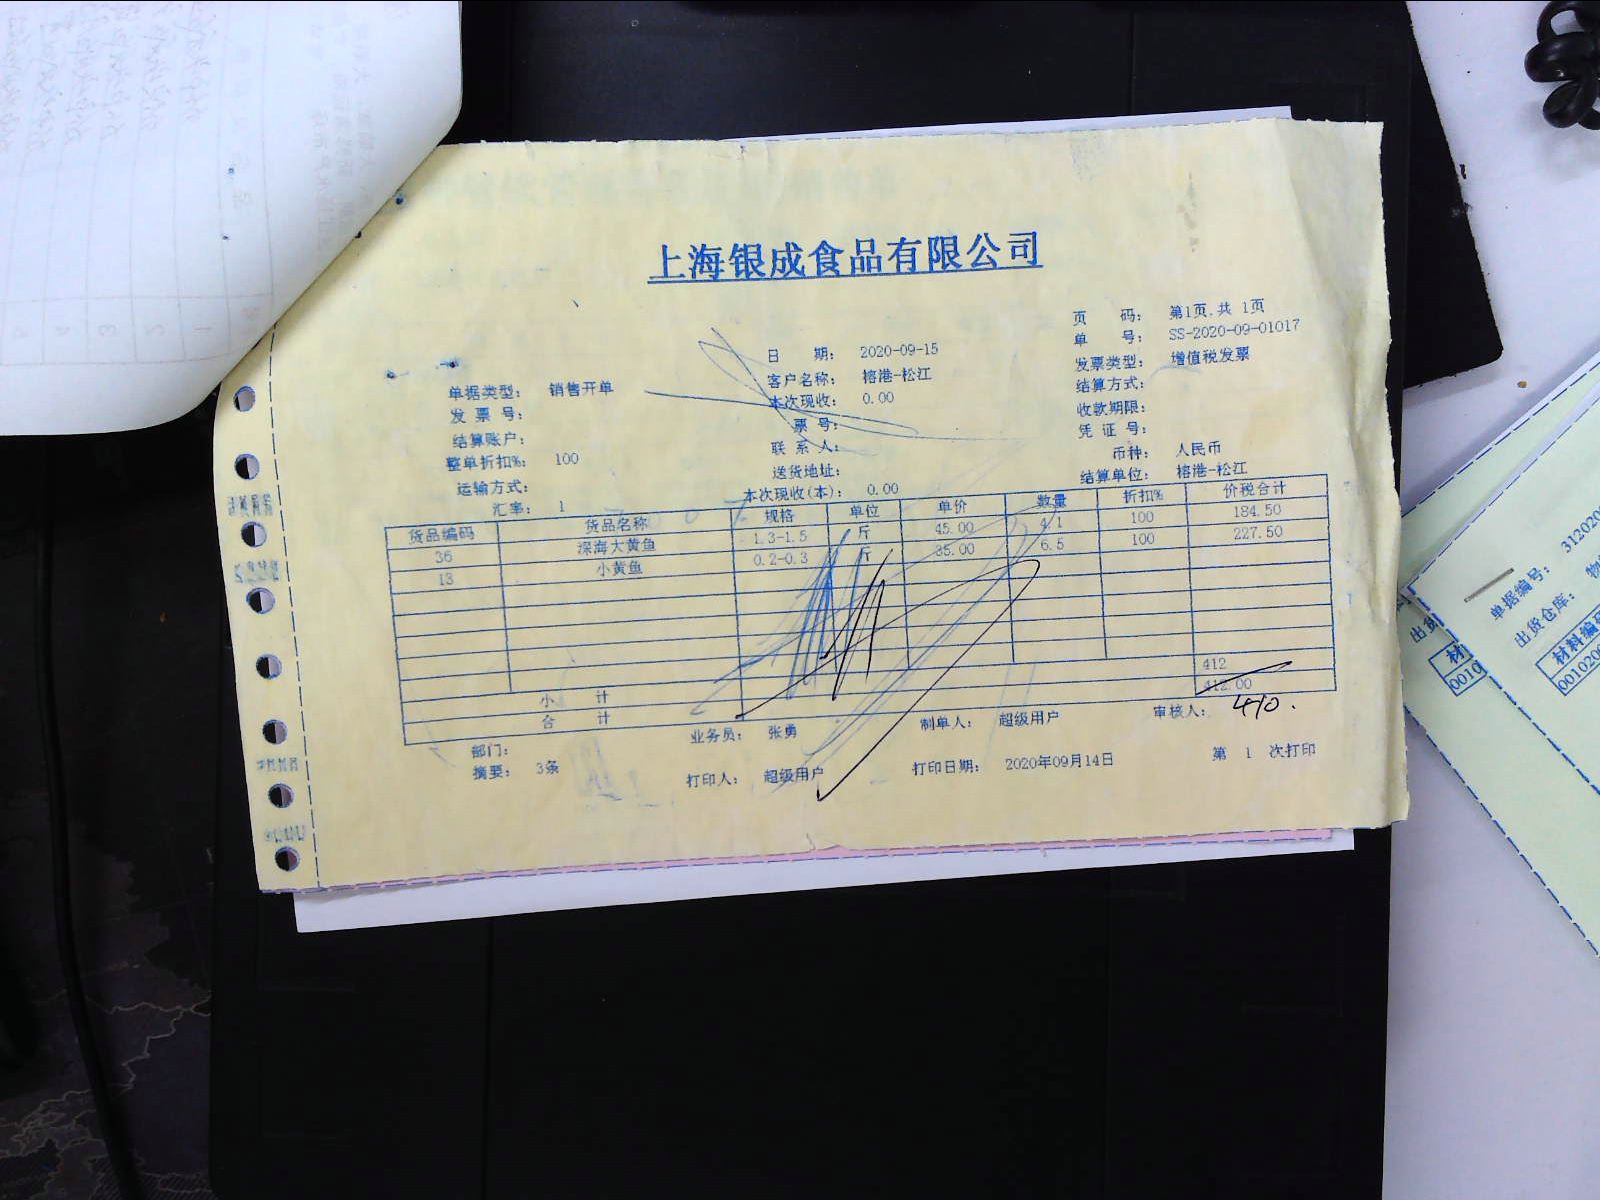 上海银成食品有限公司
页 码: 第1页,共 1页
单 号: SS-2020-09-01017
日 期: 2020-09-15
发票类型: 增值税发票
单据类型: 销售开单
客户名称: 榕港-松江
结算方式:
发 票 号:
本次现收: 0.00
收款期限:
结算账户:
票 号:
凭 证 号:
整单折扣%: 100
联 系 人:
币种: 人民币
运输方式:
送货地址:
结算单位: 榕港-松江
汇率: 1
本次现收(本): 0.00
货品编码 货品名称 规格 单位 单价 数量 折扣% 价税合计
36 深海大黄鱼 1.3-1.5 斤 45.00 4/1 100 184.50
13 小黄鱼 0.2-0.3 斤 35.00 6.5 100 227.50
小 计 412
合 计 412.00
410.
部门:
业务员: 张勇
制单人: 超级用户
审核人:
摘要: 3条
打印人: 超级用户
打印日期: 2020年09月14日
第 1 次打印
单据编号: 312020
出货仓库:
材料编码
出货
材
0010